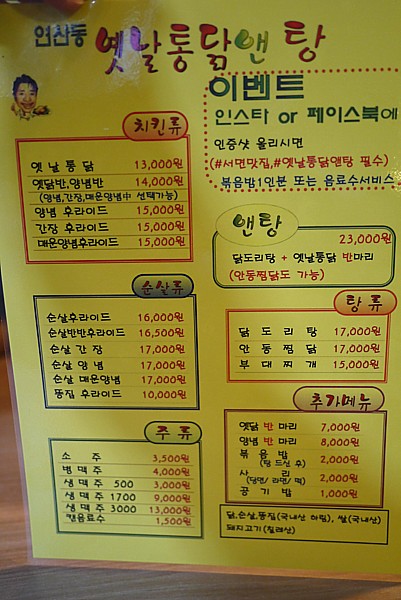 연산동 옛날통닭앤탕
이벤트
인스타 or 페이스북에
인증샷 올리시면
(#서면맛집,#옛날통닭앤탕 필수)
볶음밥1인분 또는 음료수서비스
치킨류
옛날통닭 13,000원
옛닭반,양념반 14,000원
(양념,간장,매운양념中 선택가능)
양념 후라이드 15,000원
간장 후라이드 15,000원
매운양념후라이드 15,000원
앤탕
23,000원
닭도리탕 + 옛날통닭 반마리
(안동찜닭도 가능)
순살류
순살후라이드 16,000원
순살반반후라이드 16,500원
순살 간장 17,000원
순살 양념 17,000원
순살 매운양념 17,000원
똥집 후라이드 10,000원
탕류
닭도리탕 17,000원
안동찜닭 17,000원
부대찌개 15,000원
주류
소주 3,500원
병맥주 4,000원
생맥주 500 3,000원
생맥주 1700 9,000원
생맥주 3000 13,000원
캔음료수 1,500원
추가메뉴
옛닭 반 마리 7,000원
양념 반 마리 8,000원
볶음밥 2,000원
(탕 드신 후)
사리 2,000원
(당면/라면/떡)
공기밥 1,000원
닭,순살,똥집(국내산 하림), 쌀(국내산)
돼지고기(칠레산)